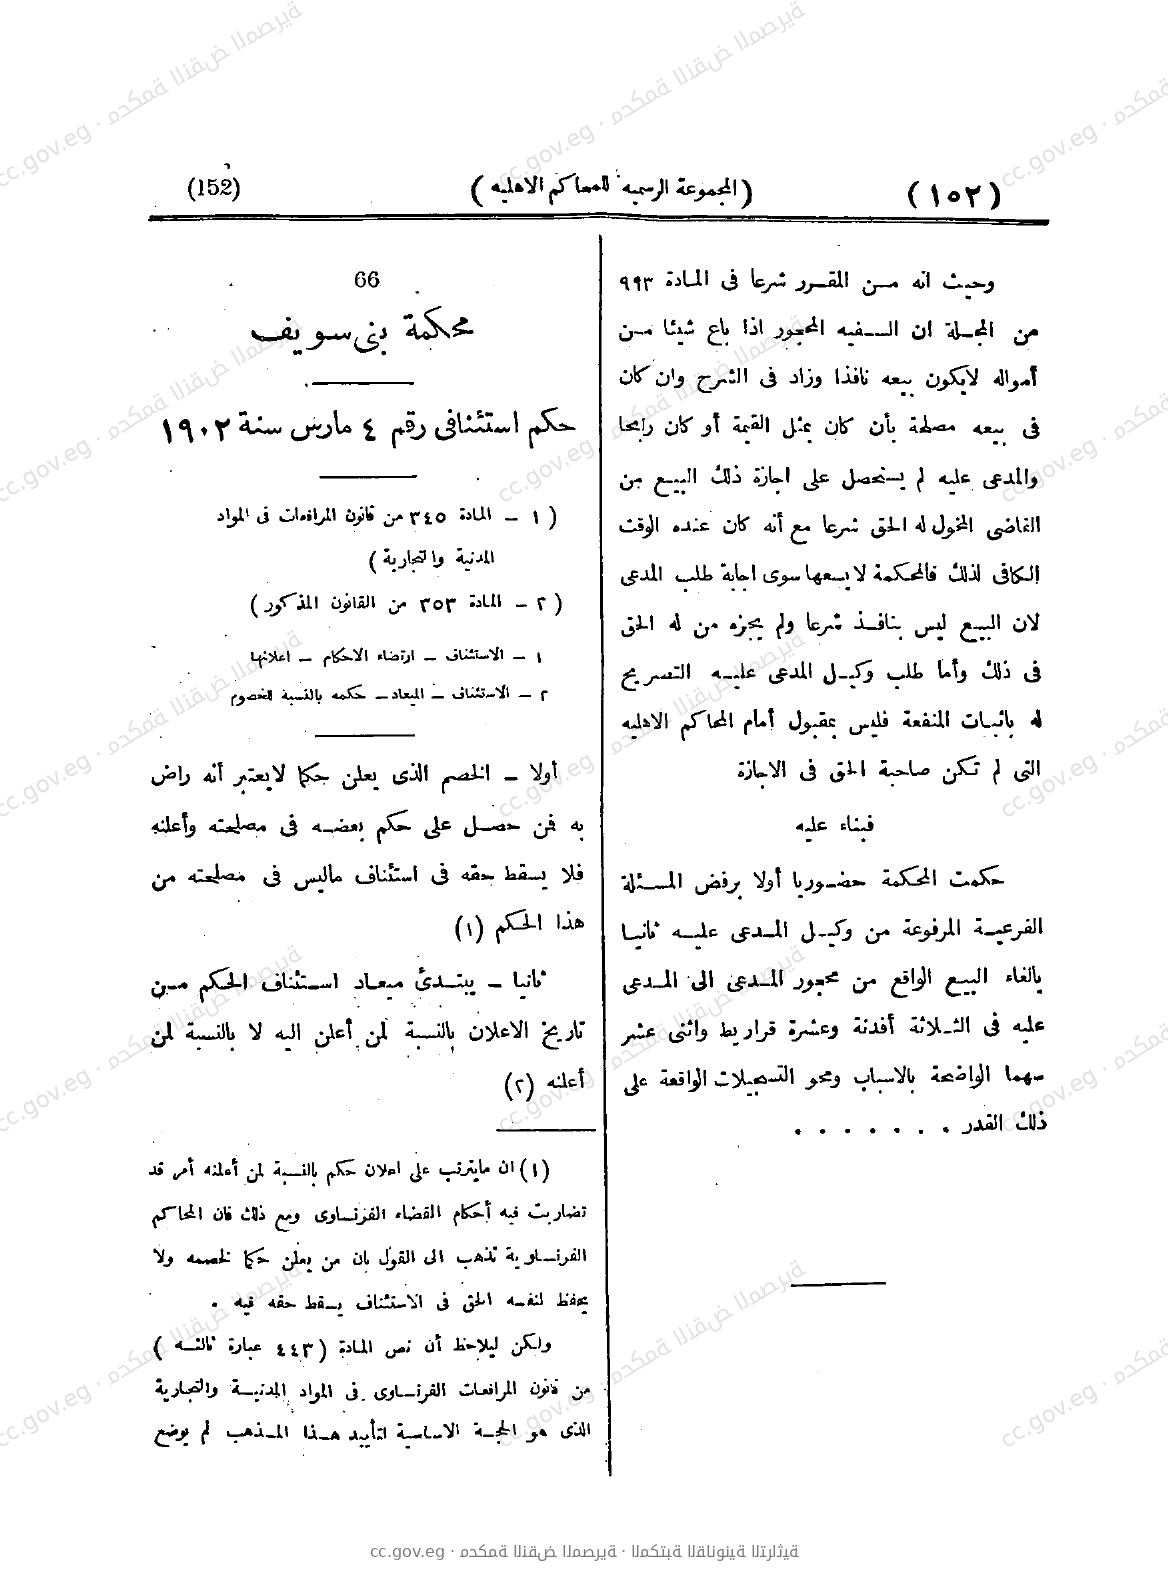 (١٥٢) (المجموعة الرسميه للمحاكم الاهليه) (152)
وحيث انه مـن المقـرر شرعا فى المادة ٩٩٣
من المجـلة ان السـفيه المحجور اذا باع شيئا مـن
أمواله لايكون بيعه نافذا وزاد فى الشرح وان كان
فى بيعه مصلحة بأن كان بمثل القيمة أو كان رابحا
والمدعى عليه لم يستحصل على اجازة ذلك البيع من
القاضى المخول له الحق شرعا مع أنه كان عنده الوقت
الكافى لذلك فالمحكمة لا يسعها سوى اجابة طلب المدعى
لان البيع ليس بنافـذ شرعا ولم يجزه من له الحق
فى ذلك وأما طلب وكيـل المدعى عليـه التصريح
له باثبات المنفعة فليس بمقبول أمام المحاكم الاهليه
التى لم تكن صاحبة الحق فى الاجازة
فبناء عليه
حكمت المحكمة حضوريا أولا برفض المسئلة
الفرعيـة المرفوعة من وكيـل المـدعى عليـه ثانيـا
بالغاء البيع الواقع من محجور المـدعى الى المـدعى
عليه فى الثـلاثة أفدنة وعشرة قراريط واثنى عشر
سهما الواضحة بالاسباب ومحو التسجيلات الواقعة على
ذلك القدر . . . . . . .
66
محكمة بنى سويف
حكم استئنافى رقم ٤ مارس سنة ١٩٠٢
(١ – المادة ٣٤٥ من قانون المرافعات فى المواد
المدنية والتجارية)
(٢ – المادة ٣٥٣ من القانون المذكور)
١ – الاستئناف – ارتضاء الاحكام – اعلانها
٢ – الاستئناف – الميعاد – حكمه بالنسبة للخصوم
أولا – الخصم الذى يعلن حكما لايعتبر أنه راض
به فمن حصـل على حكم بعضـه فى مصلحته وأعلنه
فلا يسقط حقه فى استئناف ماليس فى مصلحته من
هذا الحكم (١)
ثانيا – يبتـدئ ميعـاد استئناف الحكم مـن
تاريخ الاعلان بالنسبة لمن أعلن اليه لا بالنسبة لمن
أعلنه (٢)
(١) ان مايترتب على اعلان حكم بالنسبة لمن أعلنه أمر قد
تضاربت فيه أحكام القضاء الفرنساوى ومع ذلك فان المحاكم
الفرنساوية تذهب الى القول بان من يعلن حكما لخصمه ولا
يحفظ لنفسه الحق فى الاستئناف يسقط حقه فيه .
ولكن ليلاحظ أن نص المادة (٤٤٣ عبارة ثالثـه)
من قانون المرافعات الفرنساوى فى المواد المدنيـة والتجارية
الذى هو الحجـة الاساسية لتأييد هـذا المـذهب لم يوضع
cc.gov.eg · محكمة النقض المصرية · المكتبة القانونية التراثية